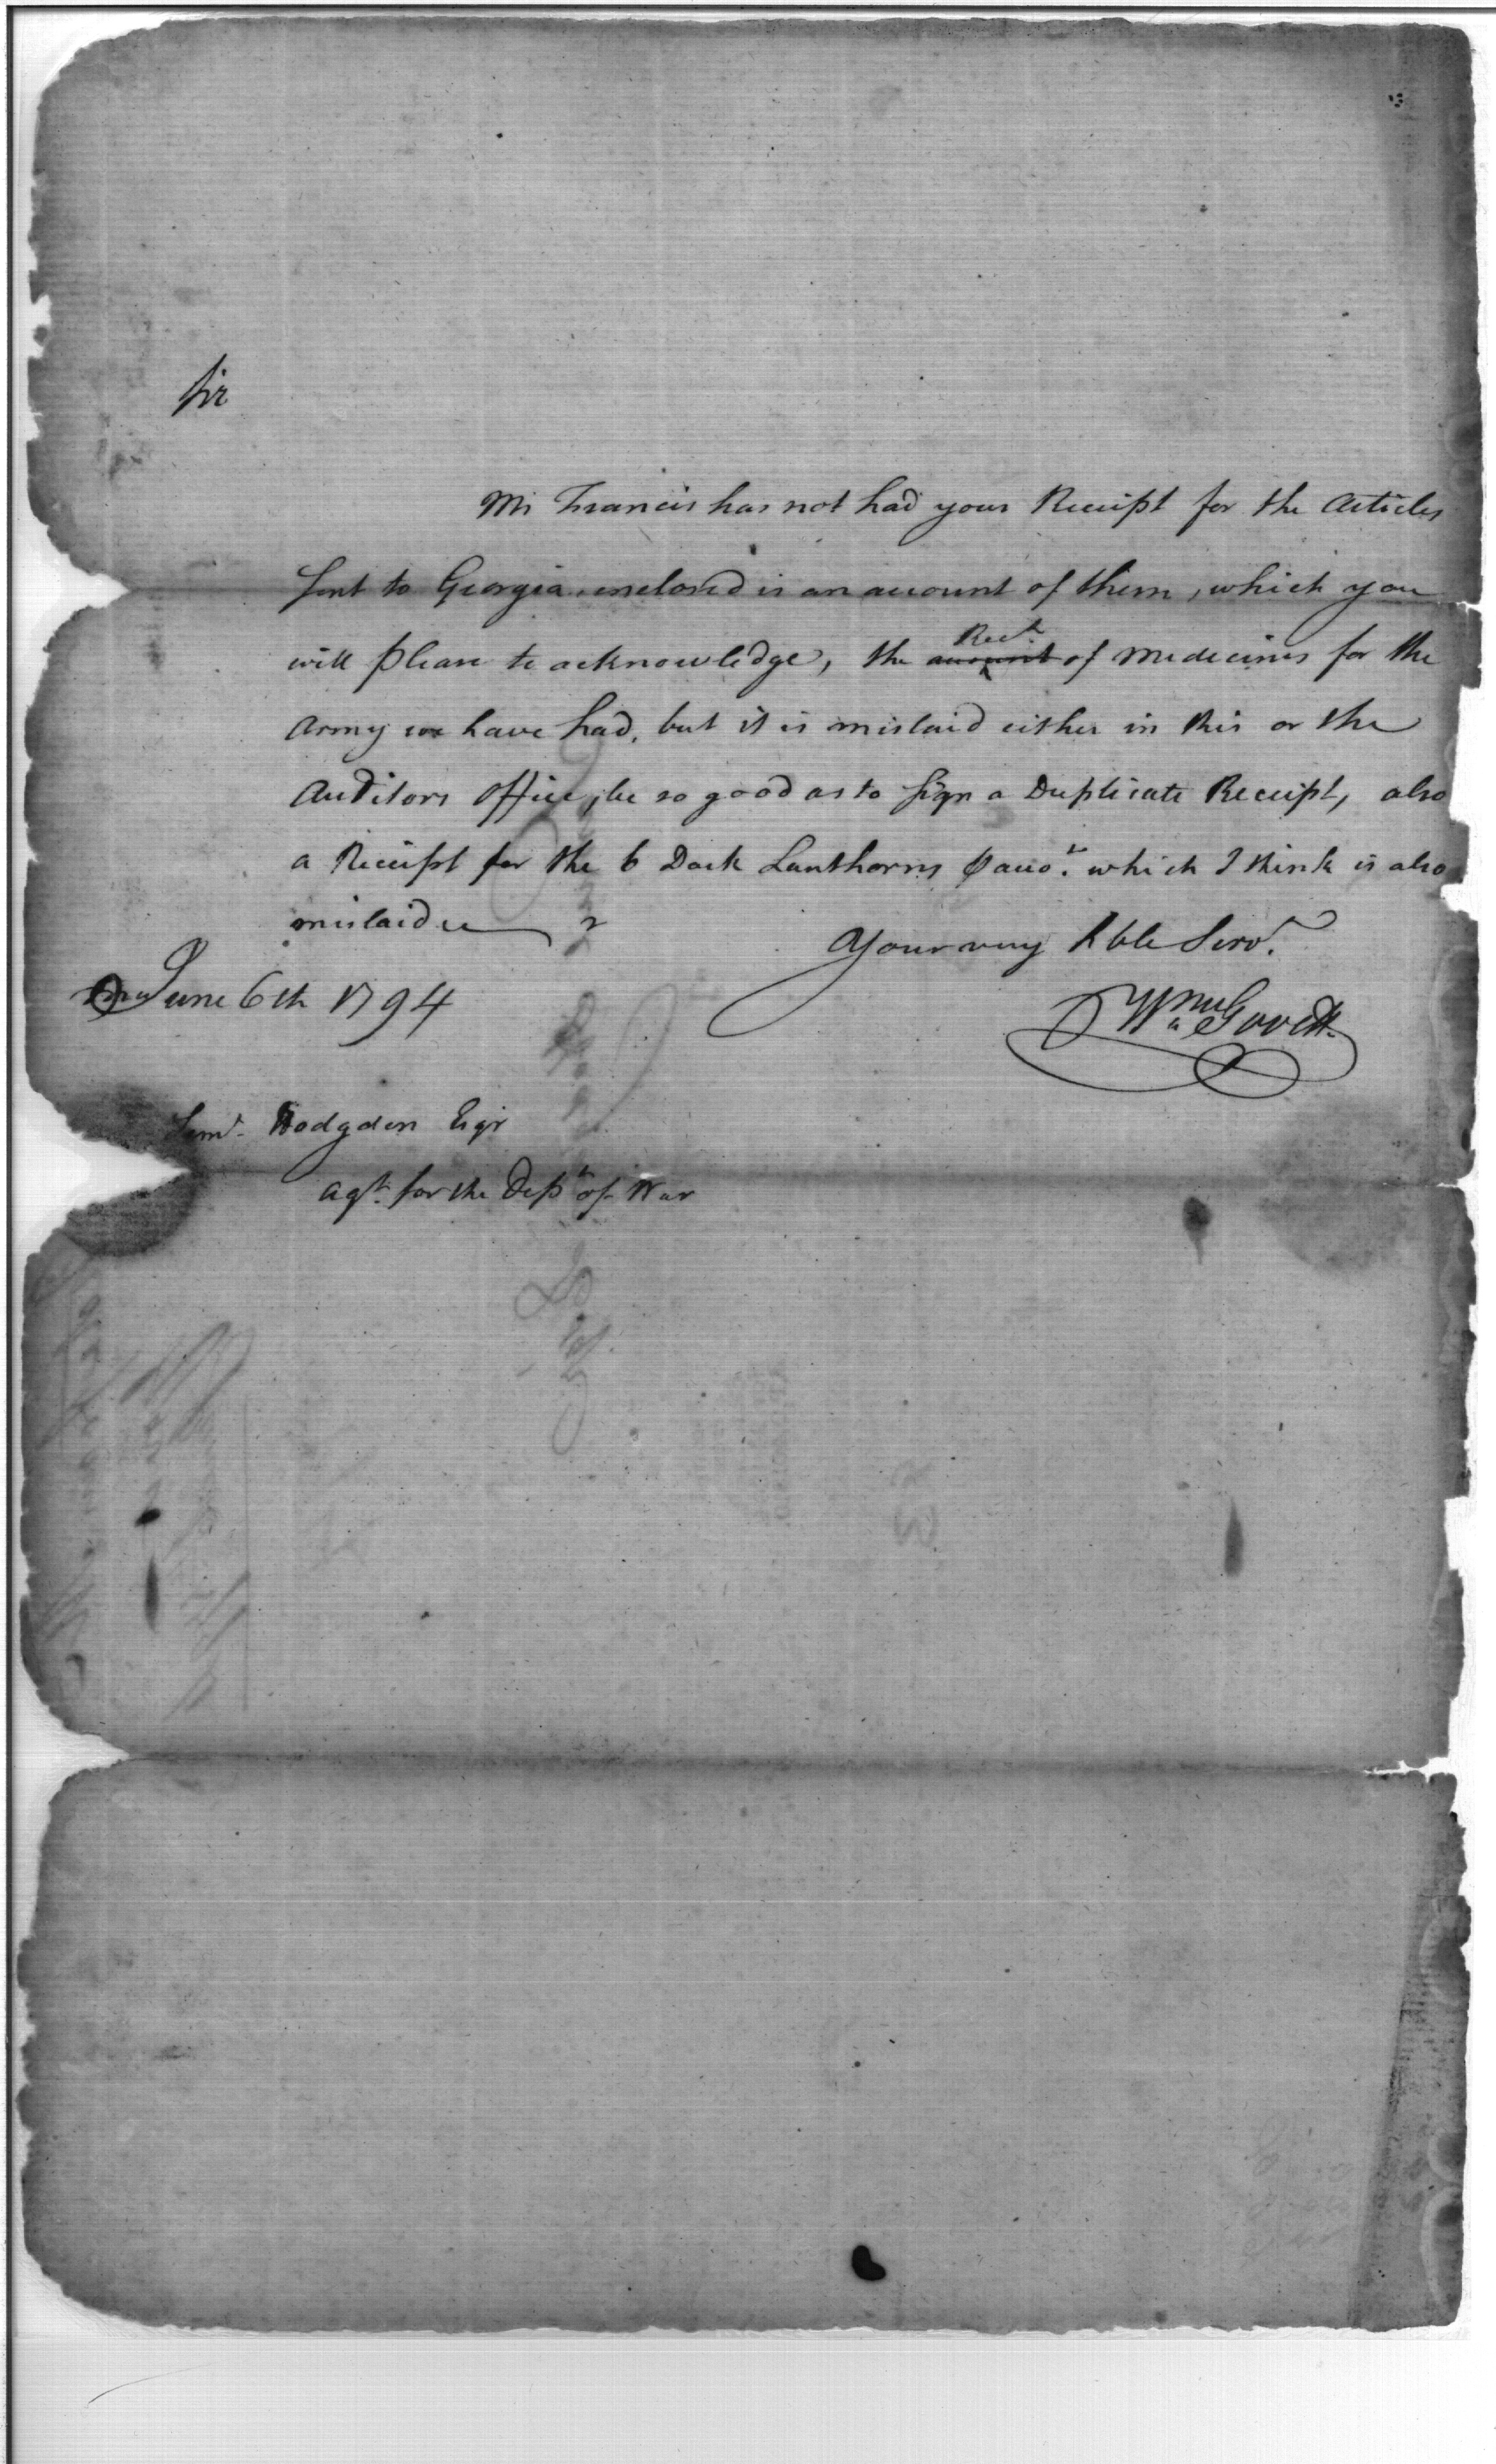 Sir
Mr Francis has not had your Receipt for the Articles
sent to Georgia, inclosed is an account of them, which you
will please to acknowledge, the account Rect. of medecines for the
Army we have had, but it is mislaid either in this or the
Auditors office, be so good as to sign a Duplicate Receipt, also
a Receipt for the 6 Dark Lanthorns ⅌ accot. which I think is also
mislaid
Your very Hble Servt.
June 6th 1794
Wm Govett
Saml. Hodgdon Esqr
agt. for the Dept of War